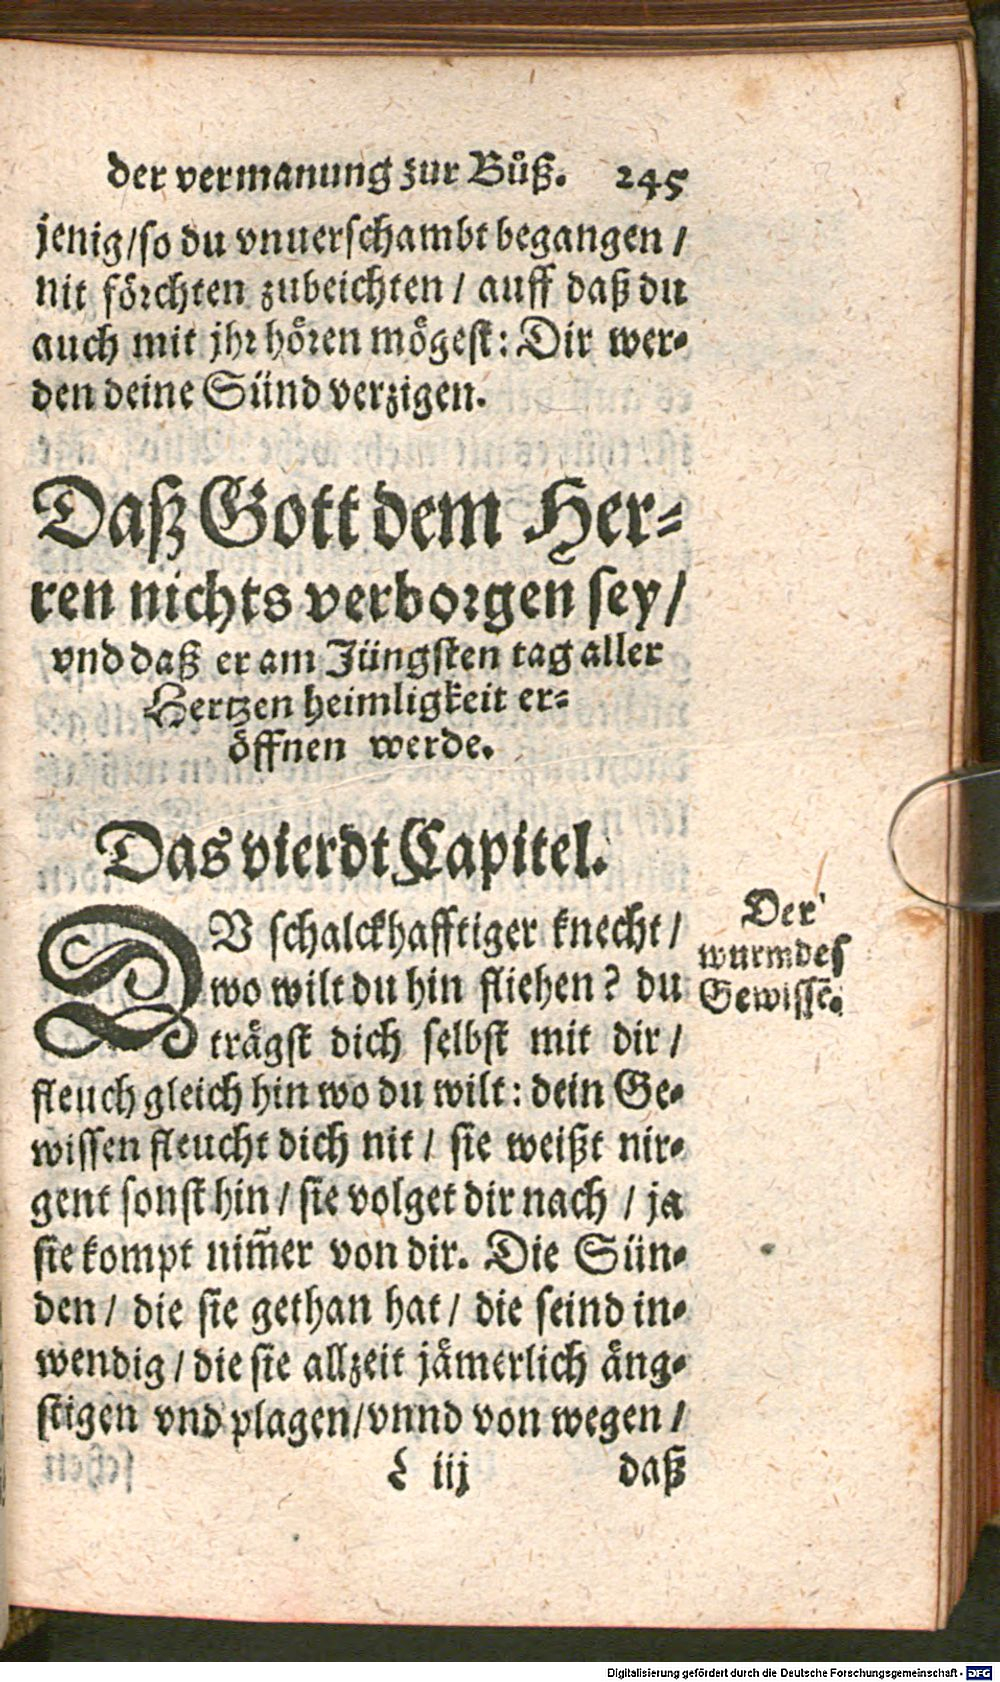 der vermanung zur Bůß. 245
jenig/so du vnuerschambt begangen /
nit förchten zubeichten / auff daß du
auch mit jhr hören mögest: Dir wer-
den deine Sünd verzigen.
Daß Gott dem Her-
ren nichts verborgen sey /
vnd daß er am Jüngsten tag aller
Hertzen heimligkeit er-
öffnen werde.
Das vierdt Capitel.
DV schalckhafftiger knecht /
wo wilt du hin fliehen? du
trägst dich selbst mit dir /
fleuch gleich hin wo du wilt: dein Ge-
wissen fleucht dich nit / sie weißt nir-
gent sonst hin / sie volget dir nach / ja
sie kompt nim̃er von dir. Die Sün-
den / die sie gethan hat / die seind in-
wendig / die sie allzeit jämerlich äng-
stigen vnd plagen/vnnd von wegen /
iij daß
Der
wurm des
Gewissẽ.
Digitalisierung gefördert durch die Deutsche Forschungsgemeinschaft - DFG